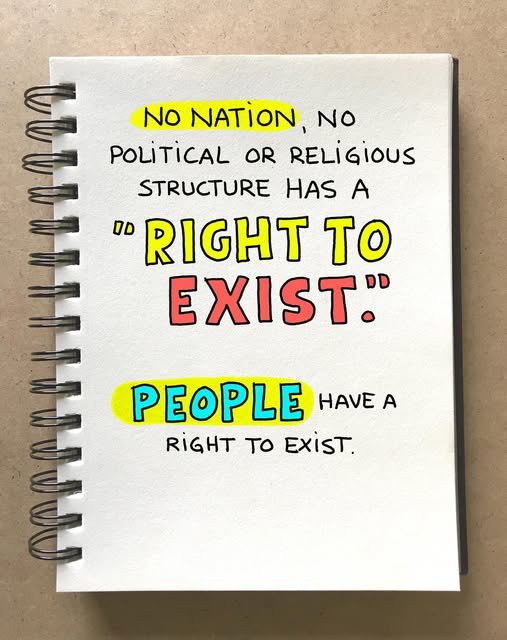 NO NATION, NO
POLITICAL OR RELIGIOUS
STRUCTURE HAS A
"RIGHT TO
EXIST."
PEOPLE HAVE A
RIGHT TO EXIST.